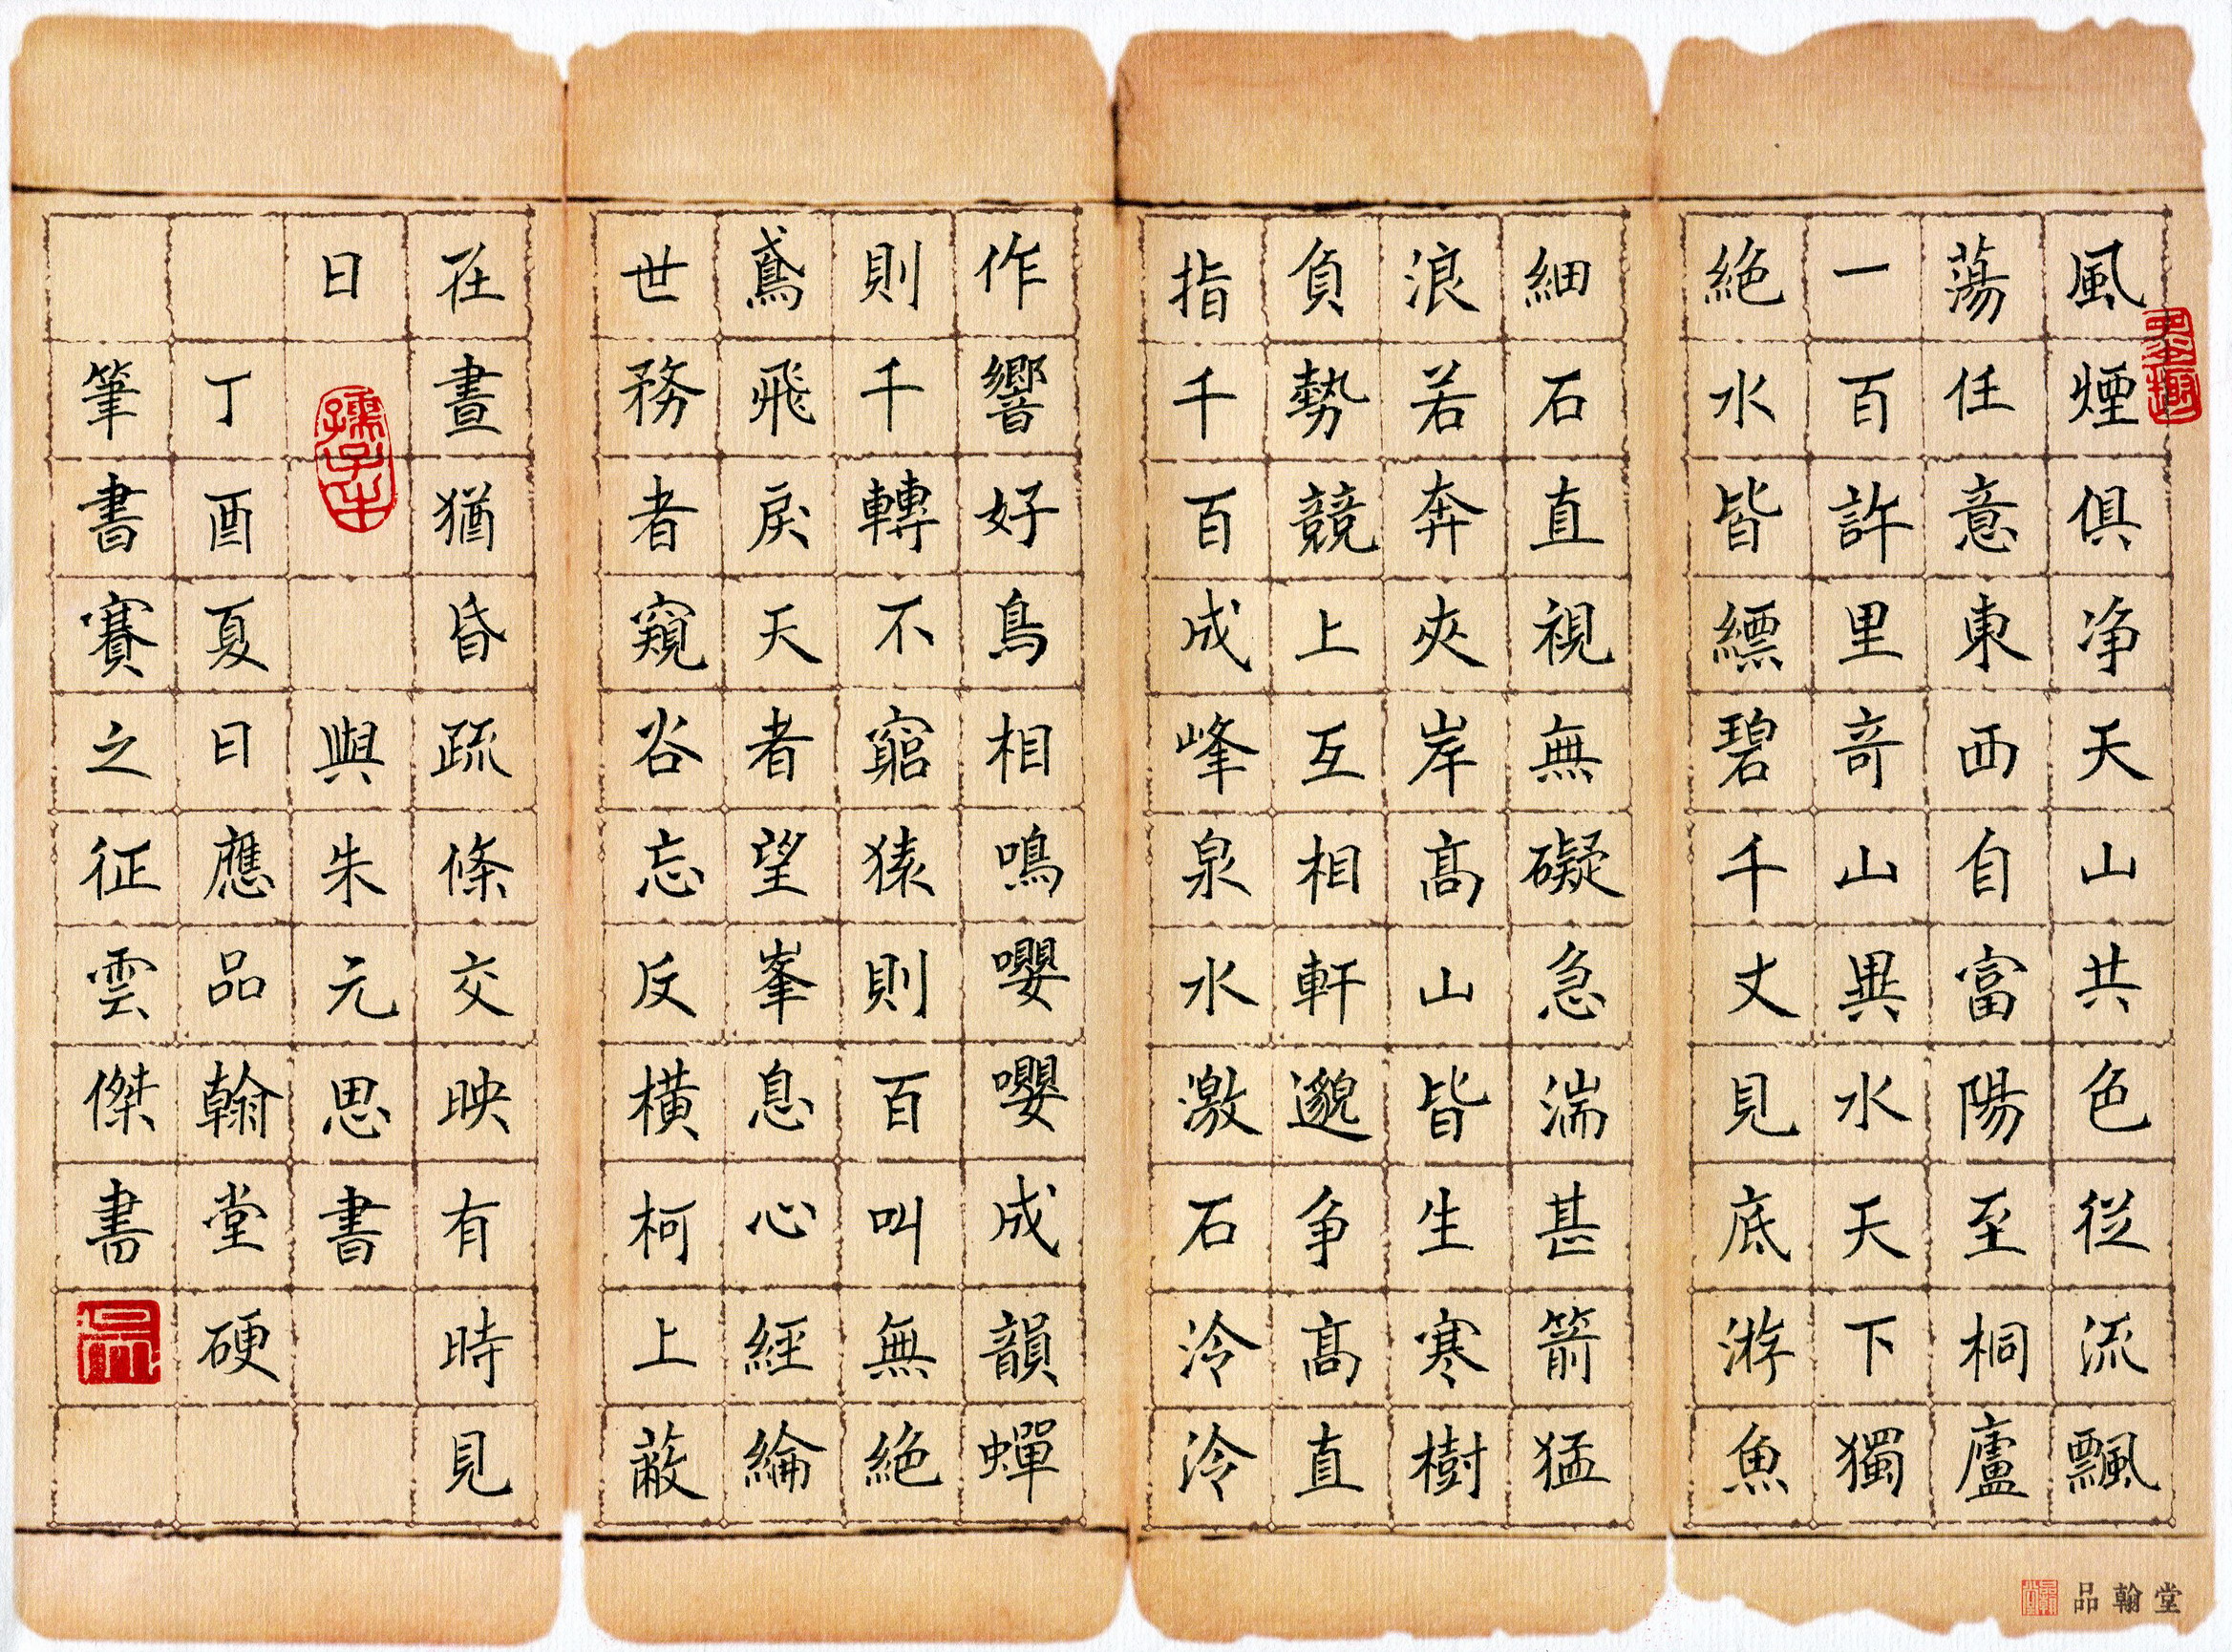 風煙俱浄天山共色從流飄
蕩任意東西自富陽至桐廬
一百許里奇山異水天下獨
絕水皆縹碧千丈見底游魚
細石直視無礙急湍甚箭猛
浪若奔夾岸髙山皆生寒樹
負勢競上互相軒邈争髙直
指千百成峰泉水激石泠泠
作響好鳥相鳴嚶嚶成韻蟬
則千轉不窮猿則百叫無絕
鳶飛戾天者望峯息心經綸
世務者窺谷忘反橫柯上蔽
在晝猶昏疏條交映有時見
日
與朱元思書
丁酉夏日應品翰堂硬
筆書賽之征雲傑書
墨趣
孺子牛
品翰堂